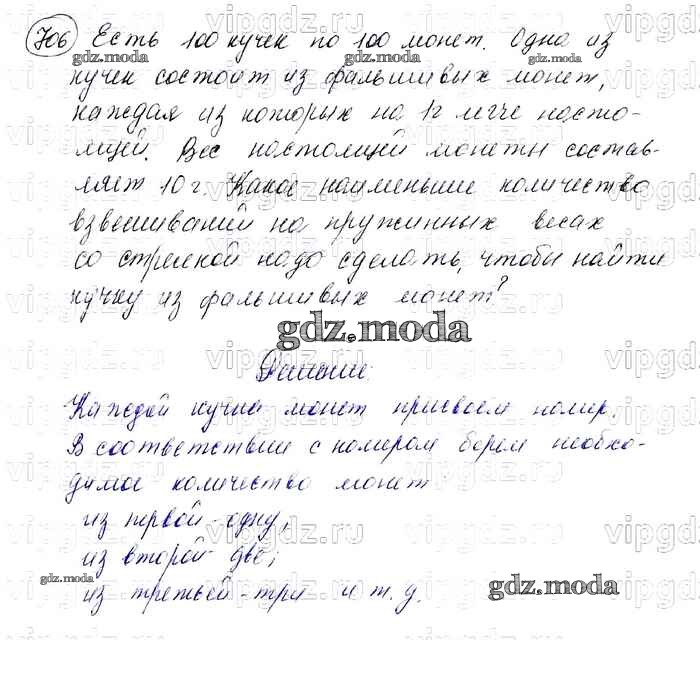 706 Есть 100 кучек по 100 монет. Одна из
кучек состоит из фальшивых монет,
каждая из которых на 1г легче насто-
ящей. Вес настоящей монеты состав-
ляет 10 г. Какое наименьшее количество
взвешиваний на пружинных весах
со стрелкой надо сделать, чтобы найти
кучку из фальшивых монет?
gdz.moda
Решение:
Каждой кучке монет присвоем номер.
В соответствии с номером берем необхо-
димое количество монет
из первой - одну;
из второй - две;
из третьей - три и т.д.
gdz.moda
gdz.moda